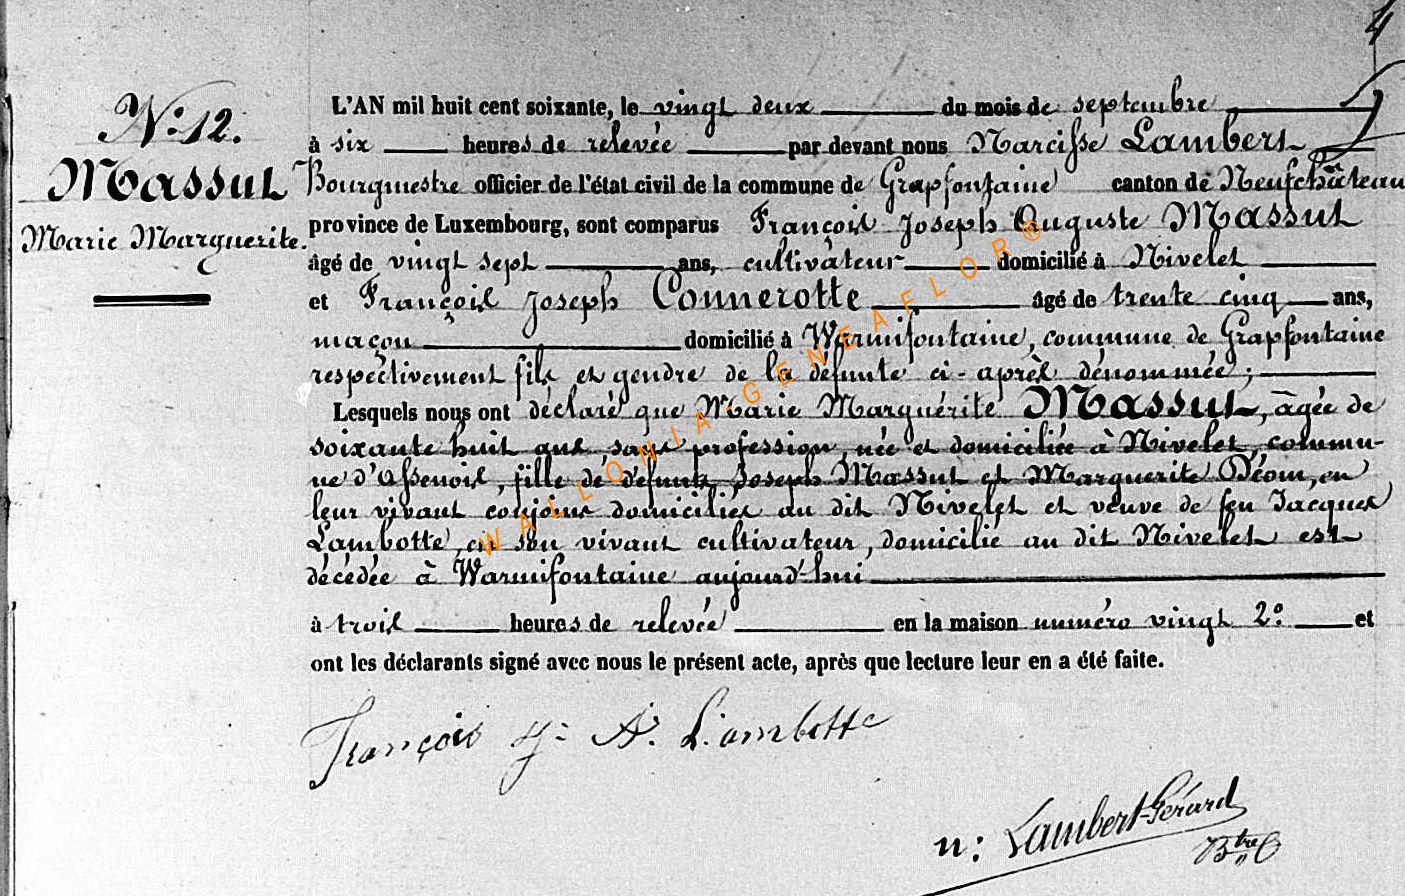 4
N.º 12.
Massut
Marie Marguerite.
L'AN mil huit cent soixante, le vingt deux du mois de septembre
à six heures de relevée par devant nous Narcisse Lambert
Bourgmestre officier de l'état civil de la commune de Grapfontaine canton de Neufchâteau
province de Luxembourg, sont comparus François Joseph Auguste Massut
âgé de vingt sept ans, cultivateur domicilié à Nivelet
et François Joseph Connerotte âgé de trente cinq ans,
maçon domicilié à Warmifontaine, commune de Grapfontaine
respectivement fils et gendre de la défunte ci-après dénommée;
Lesquels nous ont déclaré que Marie Marguérite Massut, âgée de
soixante huit ans, sans profession, née et domiciliée à Nivelet, commu-
ne d'Assenois, fille de défunts Joseph Massut et Marguerite Déom, en
leur vivant conjoins domiciliés au dit Nivelet et veuve de feu Jacques
Lambotte, en son vivant cultivateur, domicilié au dit Nivelet est
décédée à Warmifontaine aujourd'hui
à trois heures de relevée en la maison numéro vingt 2º et
ont les déclarants signé avec nous le présent acte, après que lecture leur en a été faite.
François J. A. Lambotte
N: Lambert-Gérard
Btre
WALLONIA-GENEAFLOR®